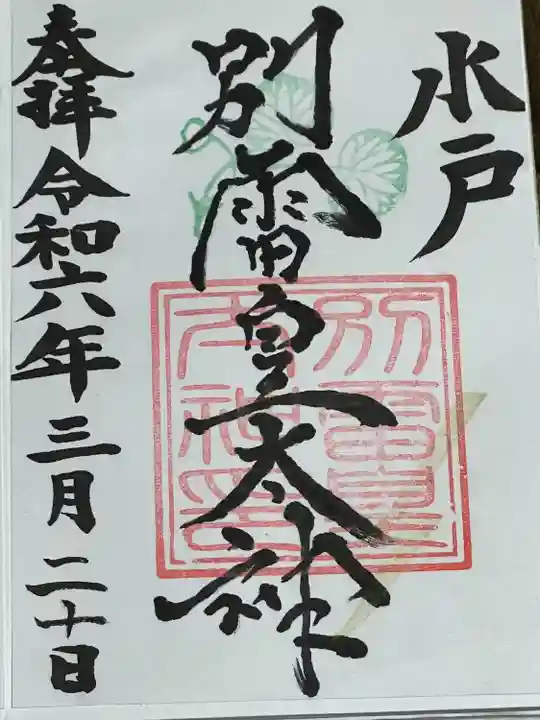 水戸
別雷皇太神
奉拝 令和六年 三月 二十日
別雷皇
太神印